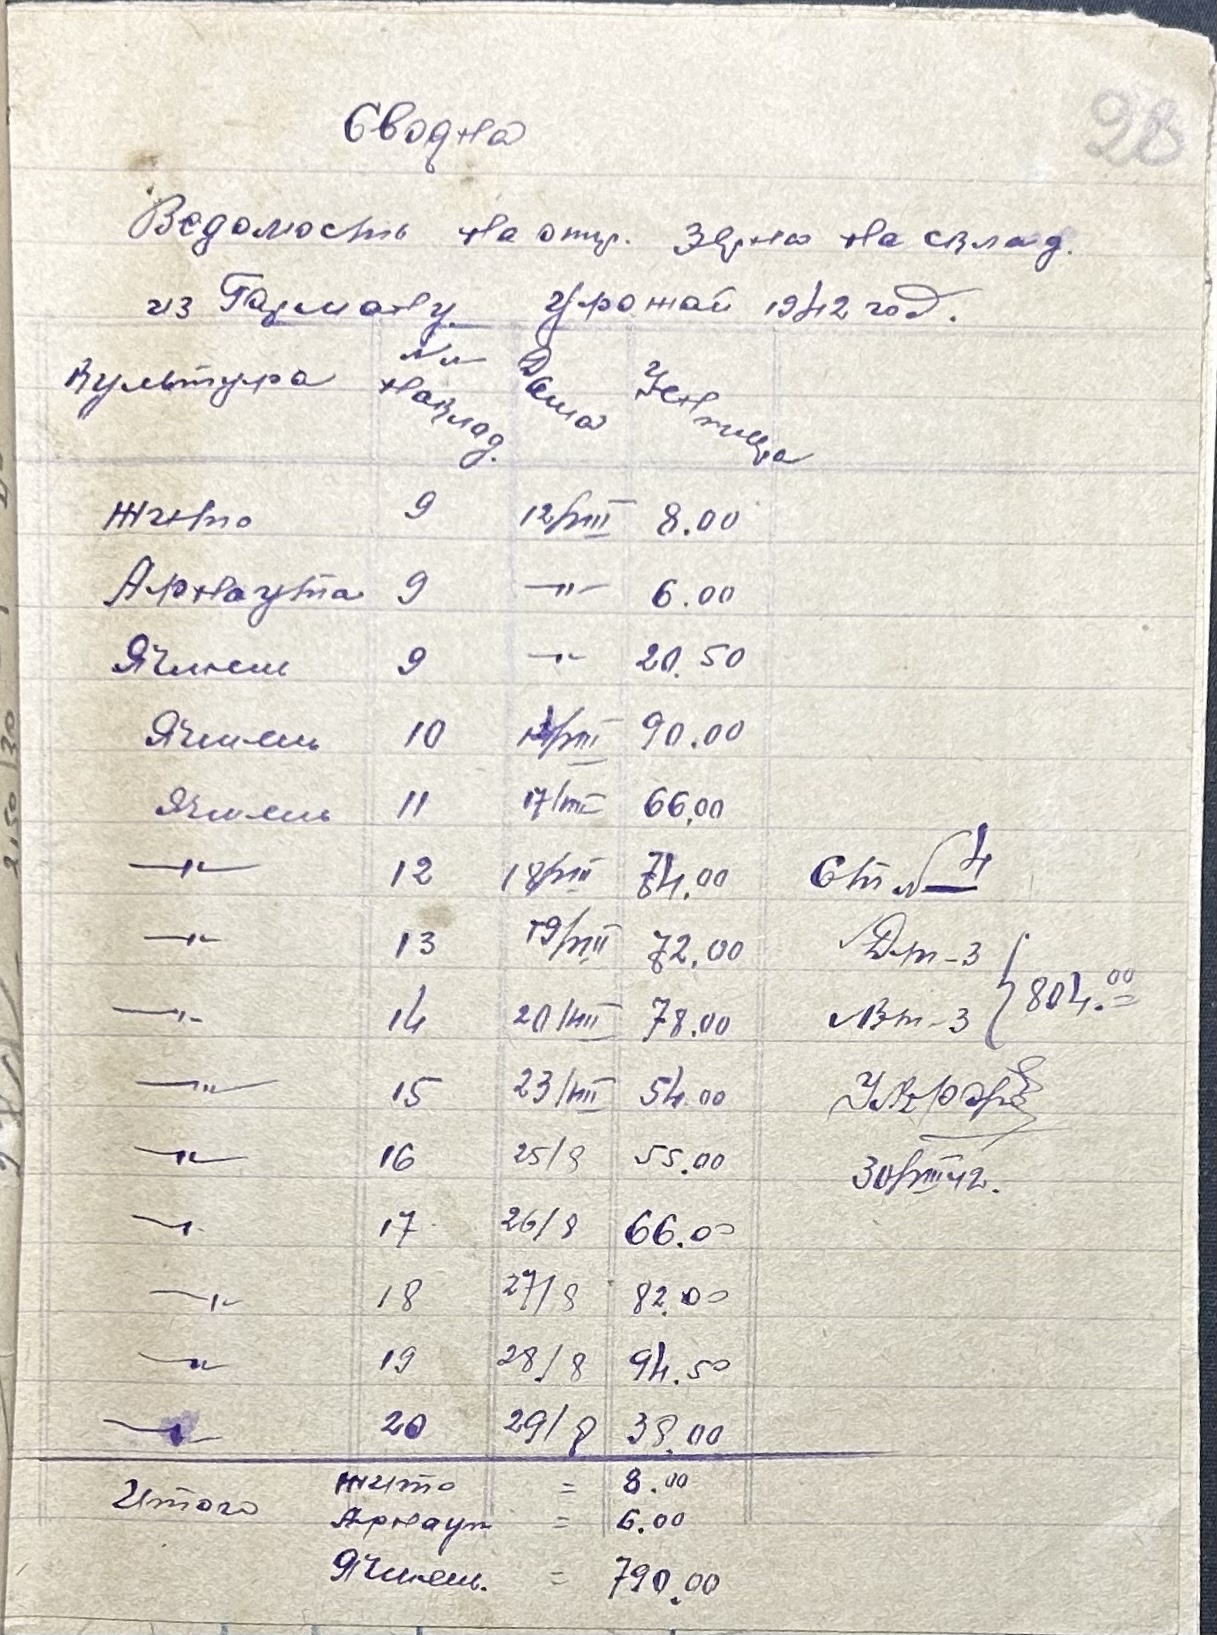 28
Сводна
Ведомость на отпр. Зерна на склад.
из Гармату Урожай 1942 год.
Культура № № наклад. Дата Центнера
Жито 9 12/VIII 8.00
Арнаутка 9 —"— 6.00
Ячмень 9 —"— 20.50
Ячмень 10 /VIII 90.00
Ячмень 11 17/VIII 66.00
—"— 12 18/VIII 74.00 Ст № 4
—"— 13 19/VIII 72.00 Дт-3
—"— 14 20/VIII 78.00 Вт-3 } 804.00
—"— 15 23/VIII 54.00
—"— 16 25/8 55.00 30/VIII 42.
—"— 17 26/8 66.00
—"— 18 27/8 82.00
—"— 19 28/8 94.50
—"— 20 29/8 38.00
Итого Жито = 8.00
Арнаут = 6.00
Ячмень. = 790.00